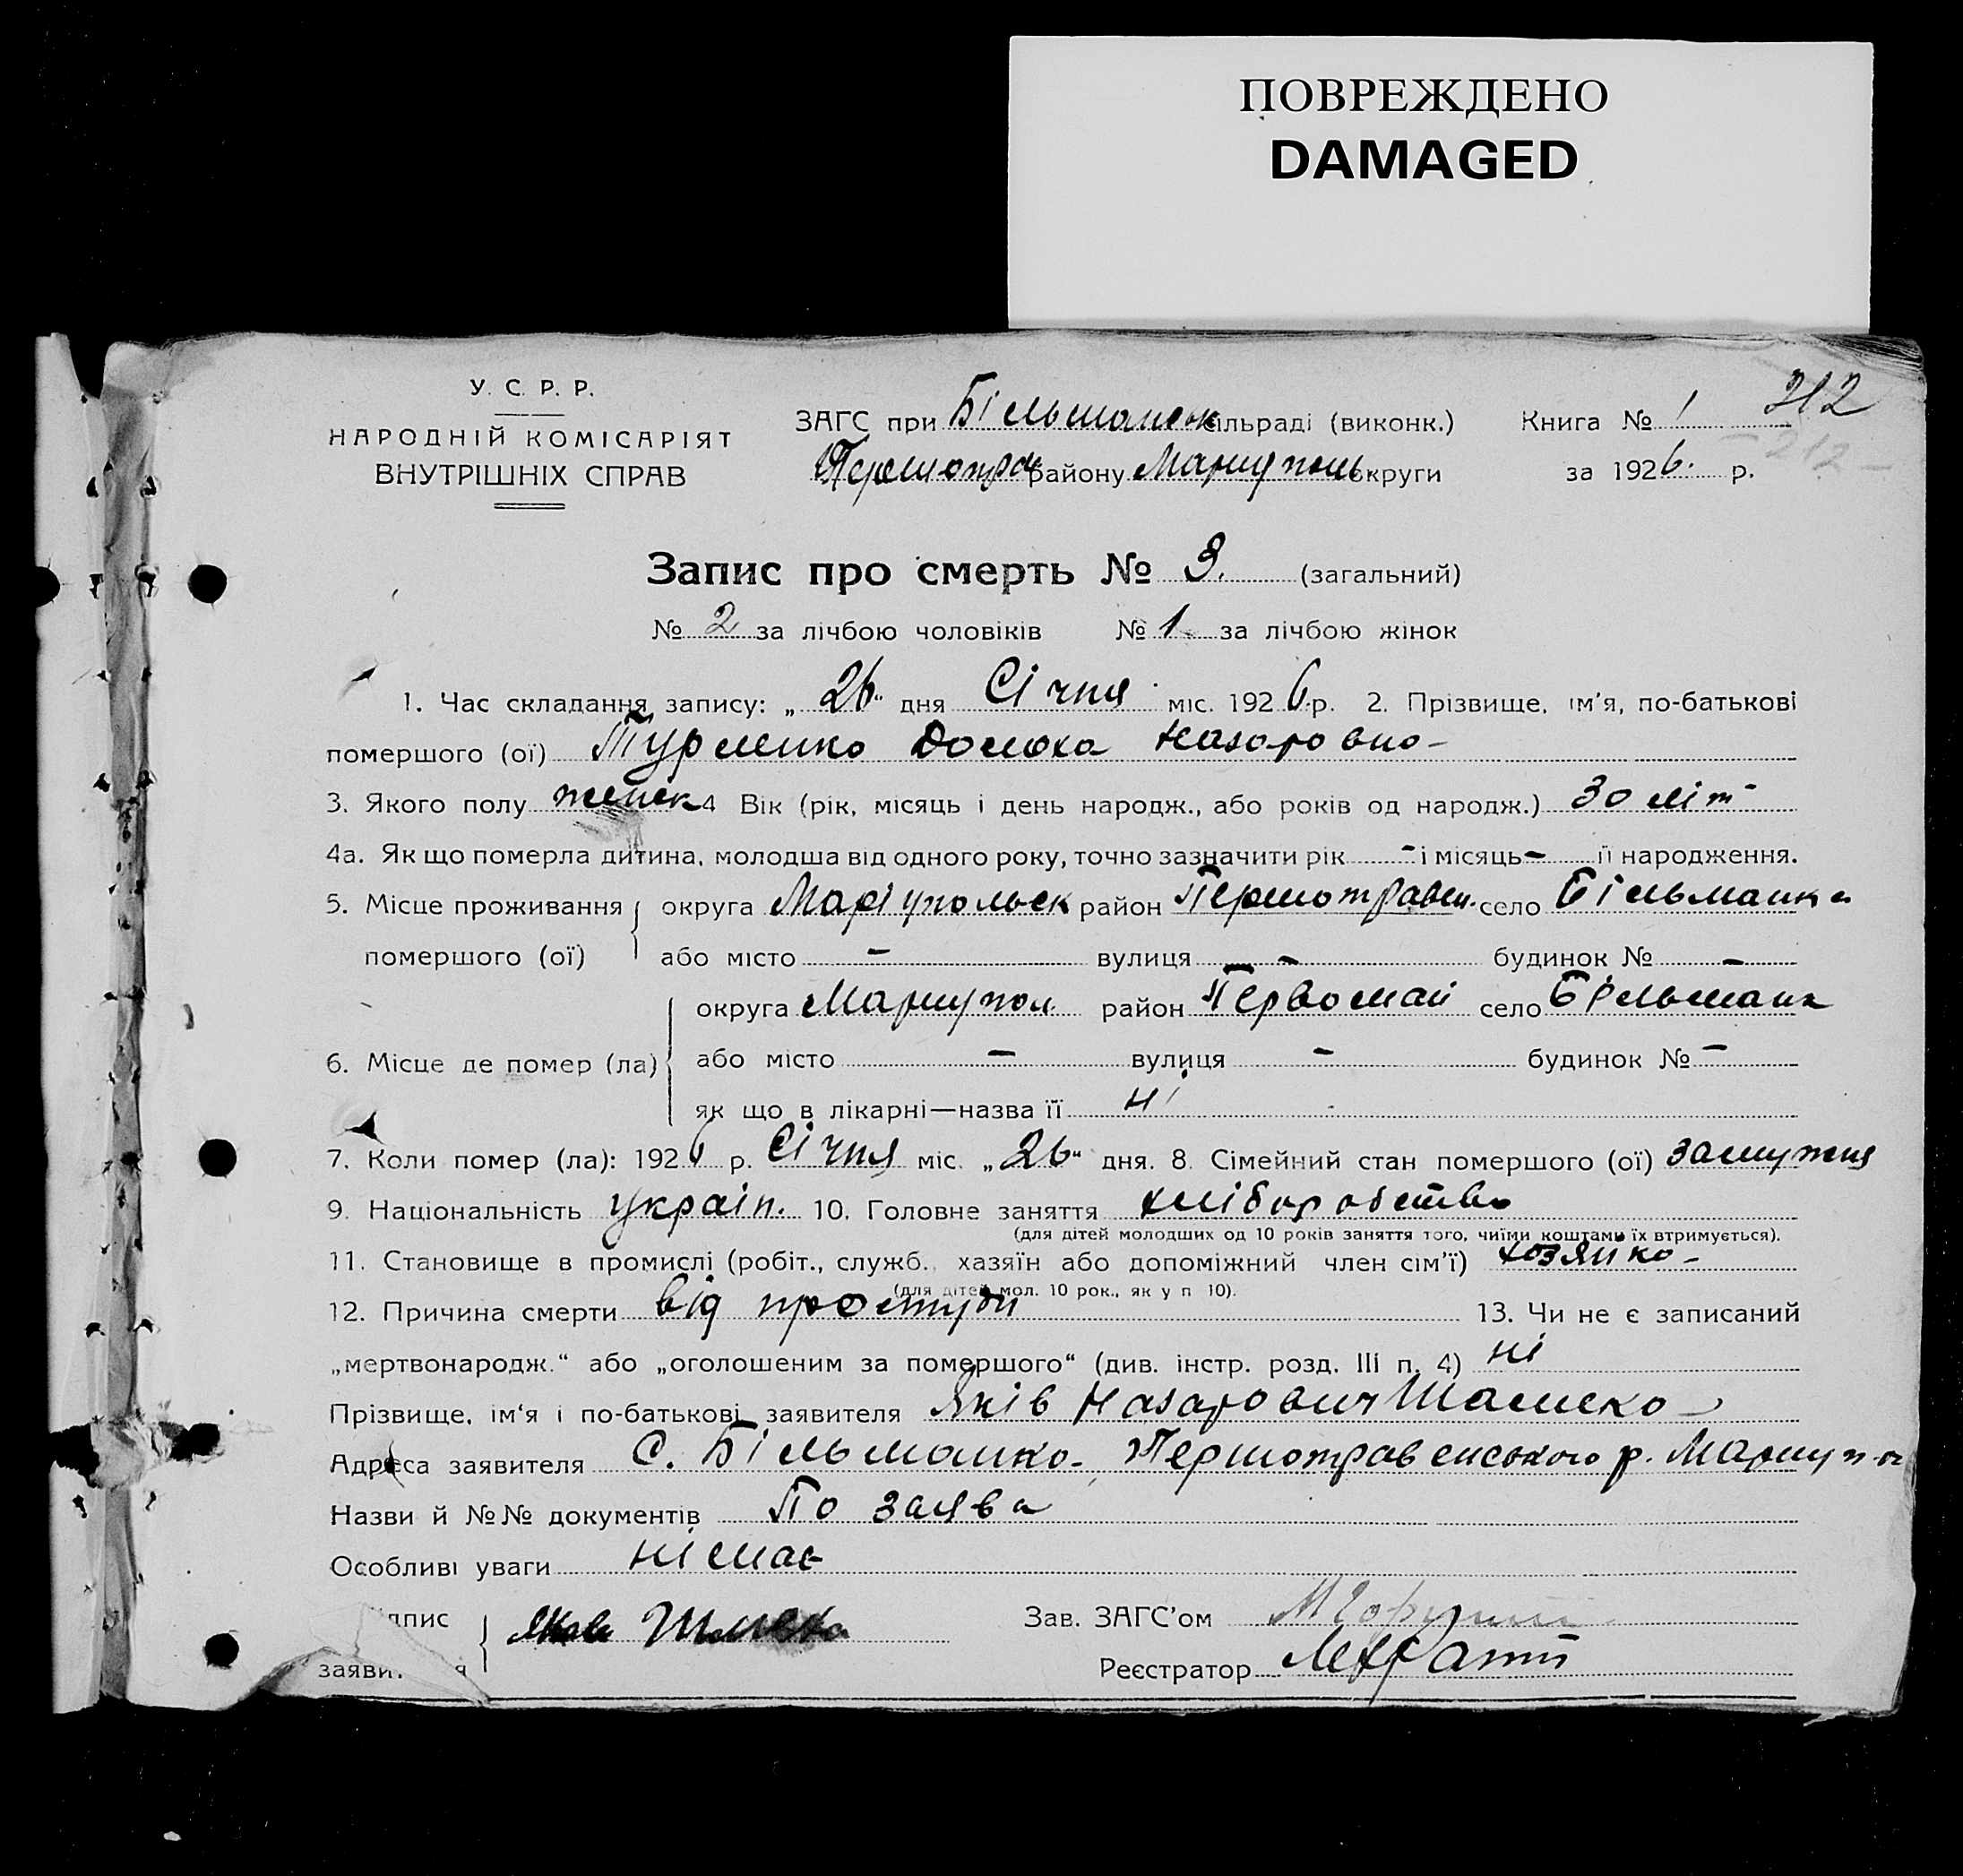 ПОВРЕЖДЕНО
DAMAGED
У. С. Р. Р.
НАРОДНІЙ КОМІСАРІЯТ
ВНУТРІШНІХ СПРАВ
ЗАГС при Більманськ сільраді (виконк.)
Першотрав району Маріуполь округи
Книга № 1 212
за 1926 р. 212
Запис про смерть № 3. (загальний)
№ 2 за лічбою чоловіків № 1. за лічбою жінок
1. Час складання запису: „26“ дня Січня міс. 1926 р. 2. Прізвище, ім'я, по-батькові
помершого (ої) Назаровна
3. Якого полу женск 4 Вік (рік, місяць і день народж., або років од народж.) 30 літ
4а. Як що померла дитина, молодша від одного року, точно зазначити рік - і місяць - її народження.
5. Місце проживання помершого (ої) округа Маріупольск район Першотравен. село Більманка
або місто - вулиця - будинок № -
6. Місце де помер (ла) округа Мариупол. район Первомай село Більманк
або місто - вулиця - будинок № -
як що в лікарні—назва її ні
7. Коли помер (ла): 1926 р. Січня міс. „26“ дня. 8. Сімейний стан помершого (ої) замужня
9. Національність україн. 10. Головне заняття хліборобство
(для дітей молодших од 10 років заняття того, чиїми коштами їх втримується).
11. Становище в промислі (робіт., служб., хазяїн або допоміжний член сім'ї) хозяйка
(для дітей мол. 10 рок., як у п 10).
12. Причина смерти від простуди 13. Чи не є записаний
„мертвонародж.“ або „оголошеним за помершого“ (див. інстр. розд. III п. 4) ні
Прізвище, ім'я і по-батькові заявителя Яків Назарович
Адреса заявителя С. Більманка Першотравенського р. Мариупол
Назви й №№ документів По заява
Особливі уваги німає
підпис Яков
заявителя
Зав. ЗАГС'ом
Реєстратор